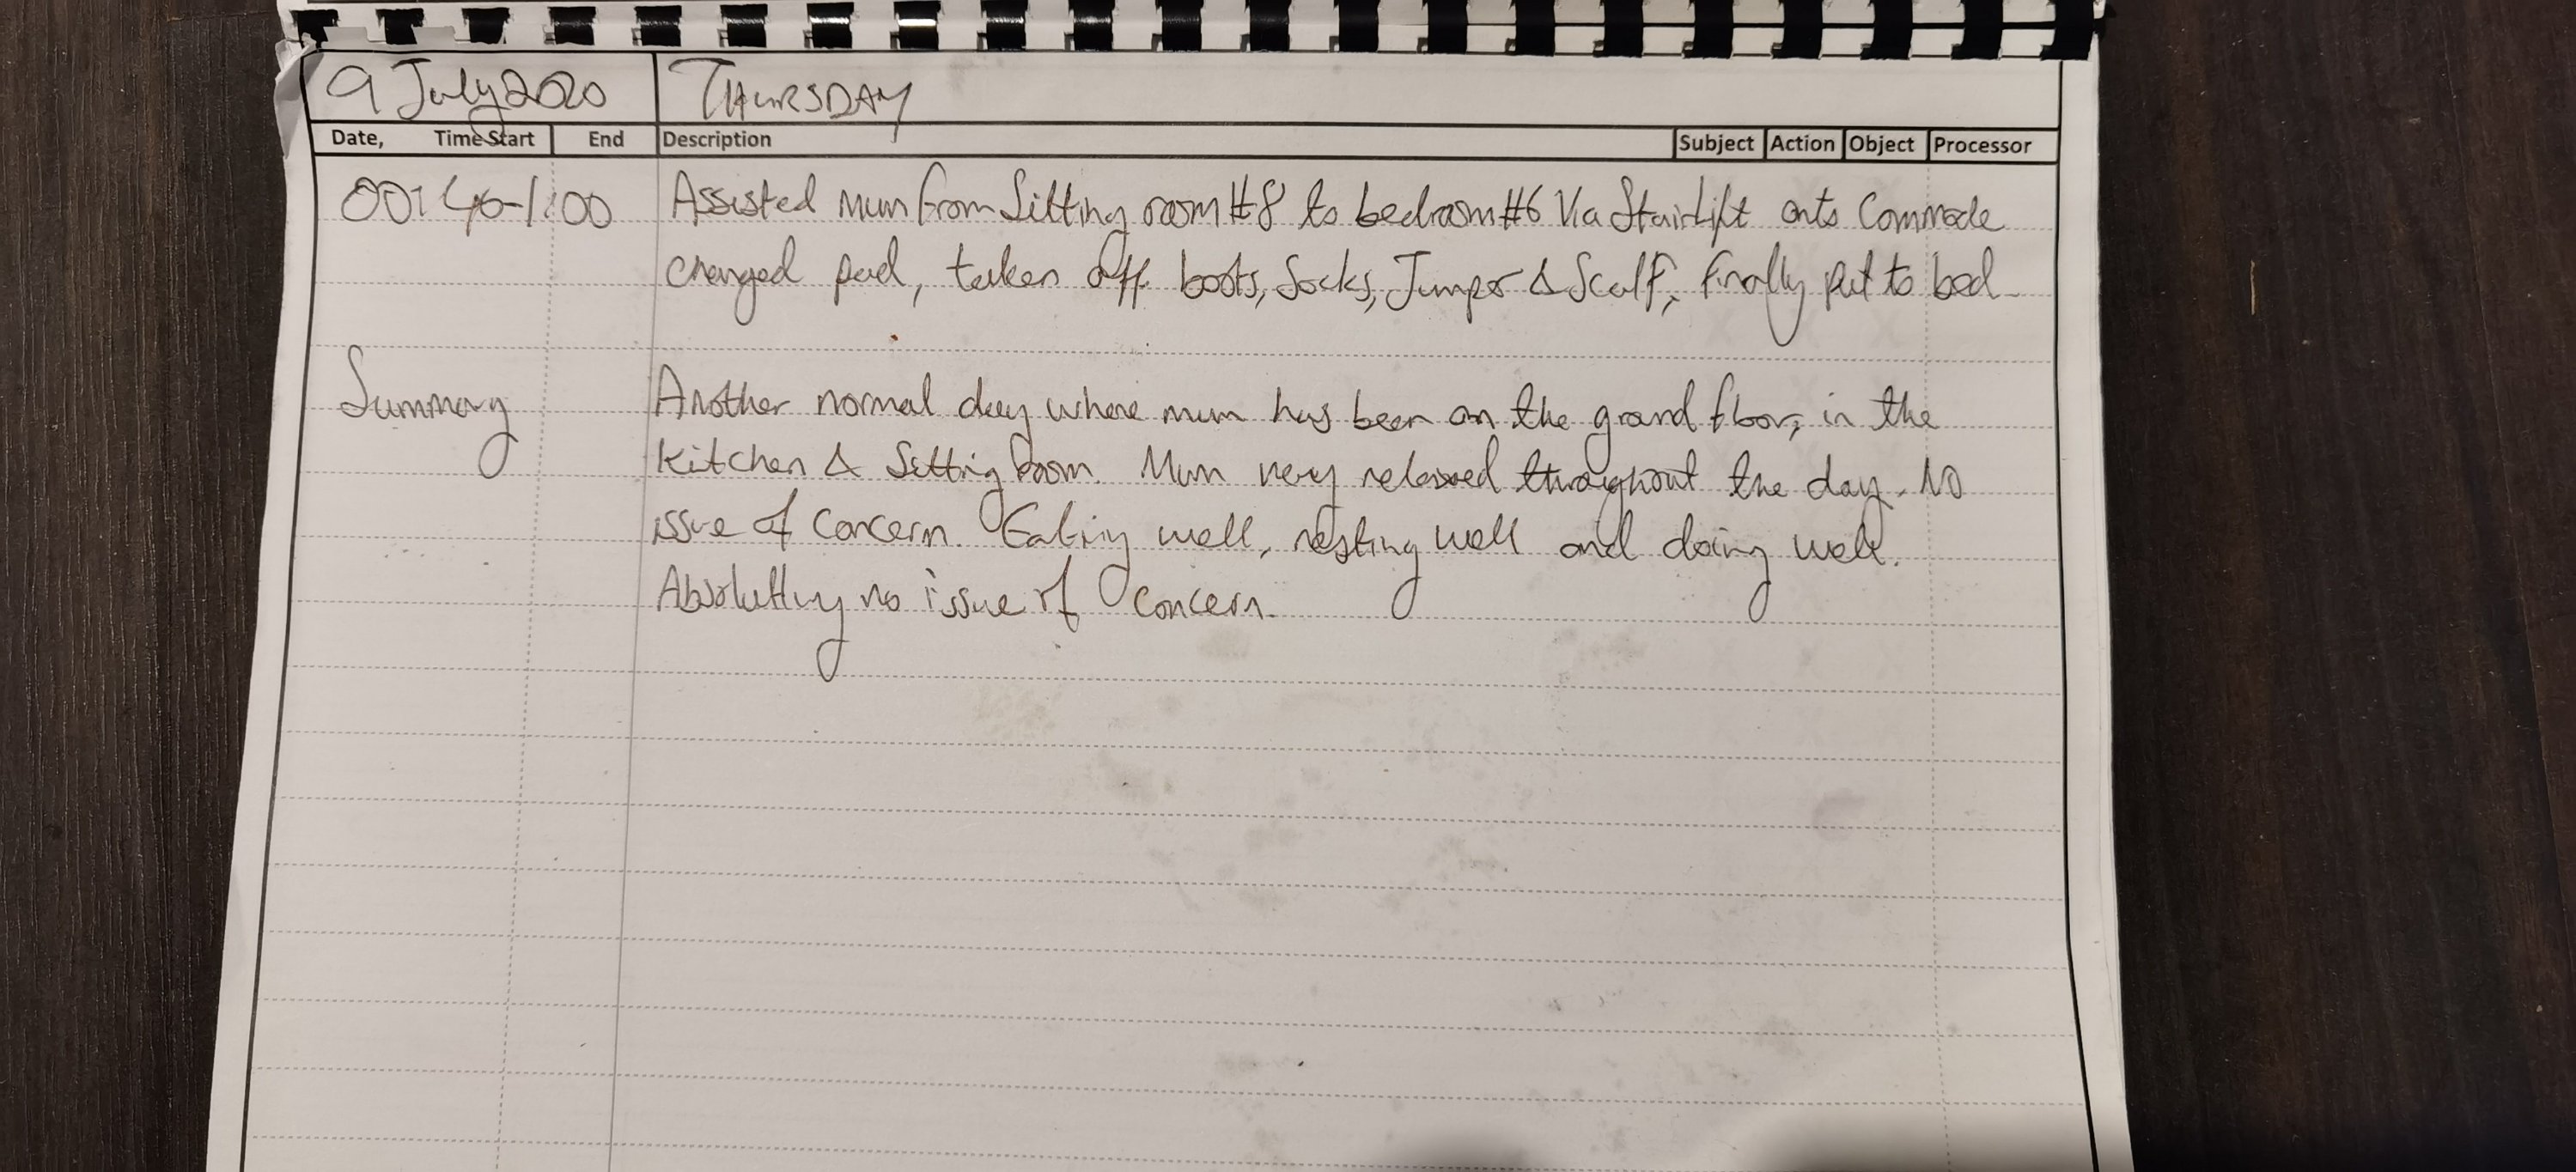 9 July 2020 THURSDAY
Date, Time Start End Description Subject Action Object Processor
00:40-1:00 Assisted mum from Sitting room #8 to bedroom #6 Via Stairlift onto Commode
changed pad, taken off boots, Socks, Jumper & Scalf, finally put to bed
Summary Another normal day where mum has been on the grand floor, in the
Kitchen & Sitting Room. Mum very relaxed throughout the day. No
issue of concern. Eating well, resting well and doing well.
Absolutlly no issue of concern.